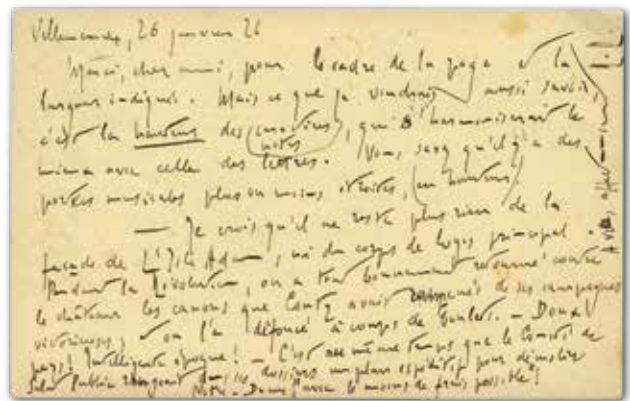 Villennes, 26 janvier 26
Merci, cher ami, pour le cadre de la page et la
largeur indiqués. Mais ce que je voudrais aussi savoir,
c'est la hauteur des (notes), qui s'harmoniserait le
mieux avec celle des lettres. Vous savez qu'il y a des
portées musicales plus ou moins étroites, (en hauteur)
— Je crois qu'il ne reste plus rien de la
façade de L'Isle Adam, ni du corps de logis principal.
Pendant la Révolution, on a tout bonnement retourné contre
le château les canons que Conti avait ramenés de ses campagnes
victorieuses, et on l'a défoncé à coups de boulets. — Doux
pays! Intelligente époque! — C'est au même temps que le Comité de
Salut Public rangeait dans ses dossiers un plan expéditif pour démolir
Notre-Dame "avec le moins de frais possible"!